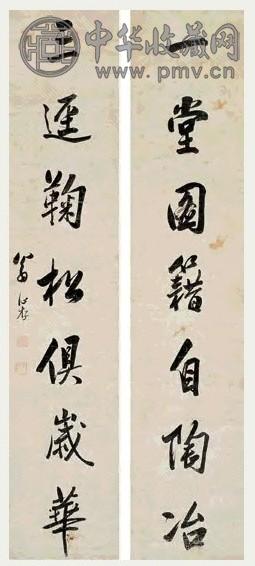 中华收藏网
www.pmv.cn
一堂圖籍自陶冶
三逕鞠松俱歲華
翁心存